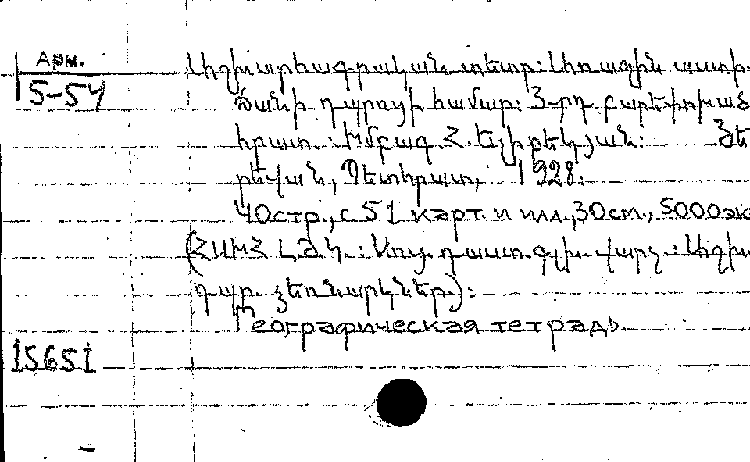 Арм.
5-54
Աշխարհագրական տետր: Առաջին աստի-
ճանի դպրոցի համար: 3-րդ բարեփոխած
հրատ. Խմբագ. Հ. Եղիբեկյան: Յե
րեվան, Պետհրատ, 1928.
40стр., с 51 карт. и илл., 30см., 5000эк
(ՀՍԽՀ ԼԺԿ: Սոց. դաստ. գլխ. վարչ.: Աշխ.
դպր. ձեռնարկներ):
Географическая тетрадь
15651